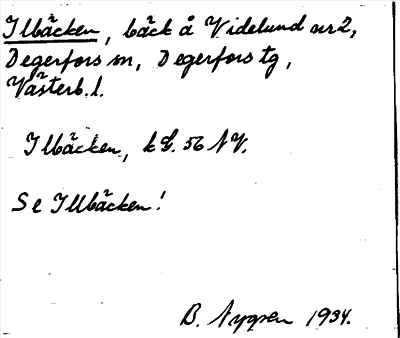 Ilbäcken, bäck å Videlund nr 2,
Degerfors sn, Degerfors tg,
Västerb. l.
Ilbäcken, k bl. 56 NV.
Se Illbäcken!
B. Nygren 1934.